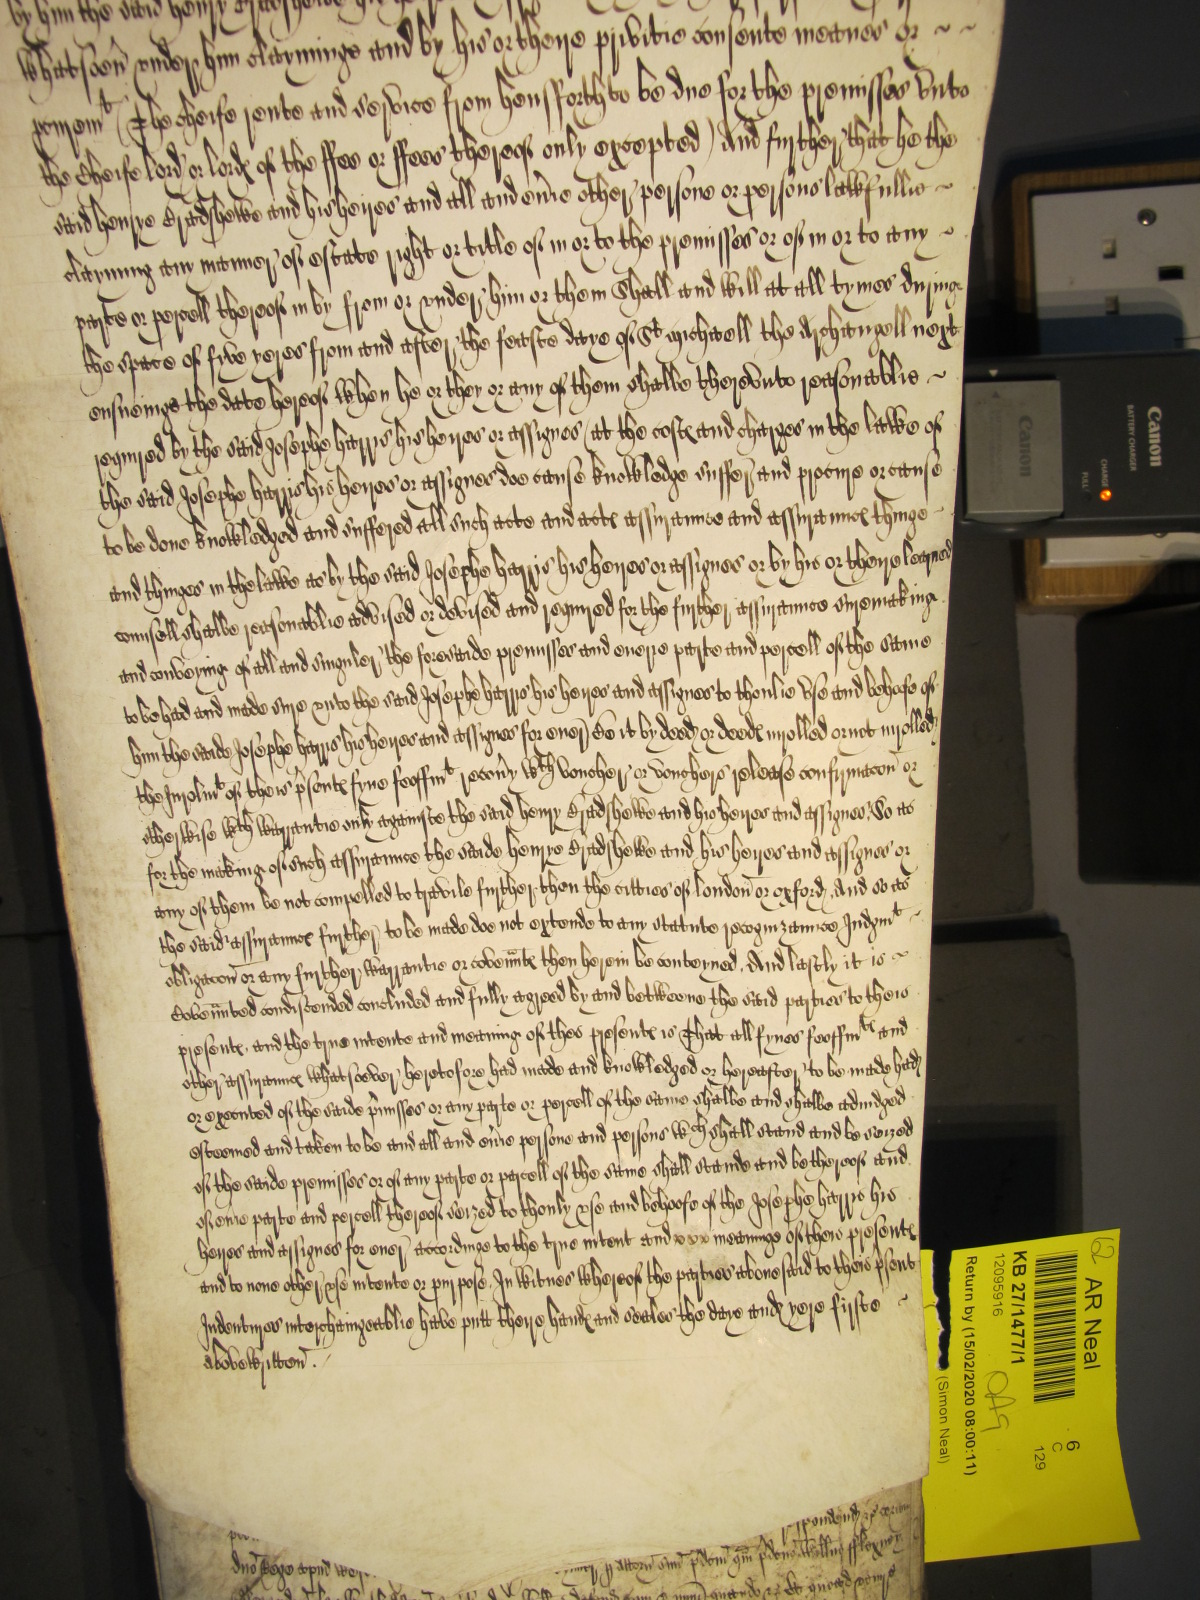 by him the said Henry Bradshewe his
whatsoeũ under him clayminge and by his or theire privitie consente meanes or ~ ~
pcuremᵗ (The cheife rente and service from hensfforth to be due for the premisses vnto
the Cheife lord or lordꝭ of the ffee or ffees thereof only excepted) And further that he the
said henrye Bradshewe and his heires and all and eũie other persone or persons lawfullie ~
clayming any manner of estate right or title of in or to the premisses or of in or to any ~
parte or percell thereof in by from or vnder him or them Shall and will at all tymes duringe
the space of five yeres from and after the feaste daye of Sᵗ michaell the Archangell next
ensueinge the date hereof When he or they or any of them shalbe therevnto reasonablie ~
required by the said Josephe harris his heires or assignes / at the costꝭ and charges in the lawe of
the said Josephe harris his heires or assignes doe cause knowledge suffer and procure or cause
to be done knowledged and suffered all such acte and actꝭ assurance and assurancꝭ thinge ~
and thinges in the lawe as by the said Josephe harris his heires or assignes or by his or theire learned
counsell shalbe reasonablie advised or devised and required for the further assurance suremaking
and conveying of all and singuler the foresaide premisses and euerie parte and percell of the same
to be had and made sure vnto the said Josephe harris his heires and assignes to thonlie vse and behofe of
him the saide Josephe harris his heires and assignes for euer Be it by deed or deedꝭ inrolled or not inrolled
the Inrolmᵗ of theis p̃sentꝭ fyne feoffmᵗ recouy wᵗʰ voucher or vouchers release confirmacon̄ or
otherwise wᵗʰ warrantie only againste the said henry Bradshewe and his heires and assignes. So as
for the making of such assurance the saide henrye Bradshewe and his heires and assignes or
any of them be not compelled to travile further then the citties of london or oxford, And so as
the said assurancꝭ further to be made doe not extende to any statute recognizance Judgmᵗ ~
obligacon̄ or any further warrantie or covenñtꝭ then herein be conteyned. And lastly it is ~
Covenñted condiscended concluded and fully agreed by and betweene the said parties to theis
presentꝭ, and the true intente and meaning of thes presentꝭ is That all fynes feoffmᵗꝭ and
other assurancꝭ whatsoever heretofore had made and knowledged or hereafter to be made had
or executed of the saide p̃misses or any parte or percell of the same shalbe and shalbe adiudged
esteemed and taken to be and all and eũie persone and persons wᶜʰ shall stand and be seized
of the saide premisses or of any parte or parcell of the same shall stande and be thereof and
of eũie parte and percell thereof seized to thonly vse and behoofe of the Josephe harris his
heires and assignes for euer accordinge to the true intent and meaninge of theis presentꝭ
and to none other vse intente or purpose. In witnes whereof the parties abouesaid to theis p̃sent
Indentures interchaingeablie have putt theire handꝭ and seales the daye and yere firste ~
abovewritten.
Canon
BATTERY CHARGER
CHARGE
FULL
Canon
62 AR Neal
KB 27/1477/1
12095916
Return by (15/02/2020 08:00:11)
(Simon Neal)
6
C
129